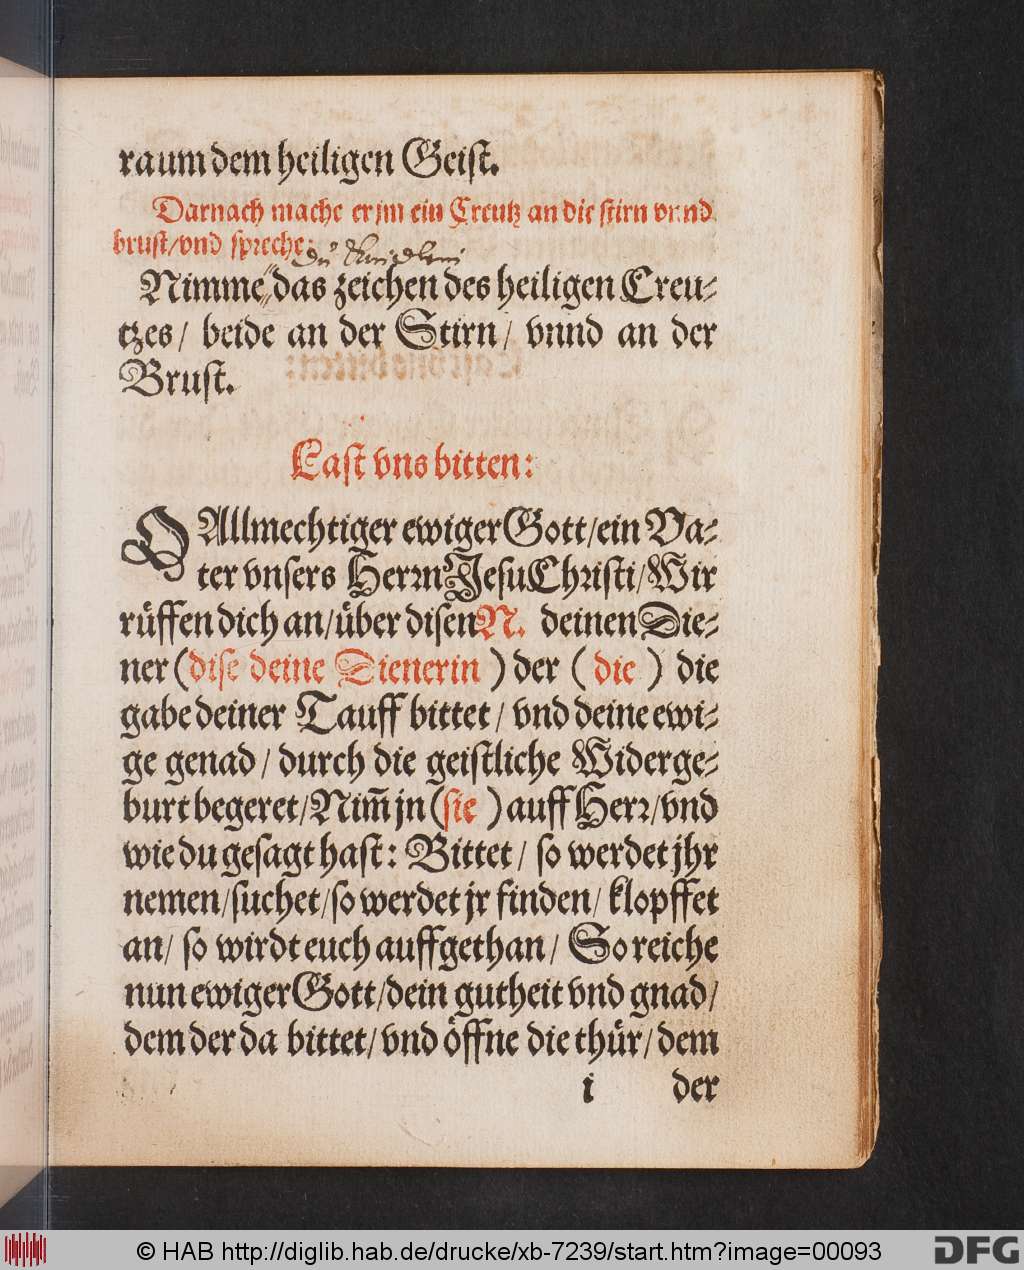 raum dem heiligen Geist.
Darnach mache er jm ein Creutz an die stirn vnnd
brust/vnd spreche:
du Kindlein
Nimme das zeichen des heiligen Creu-
tzes/ beide an der Stirn/ vnnd an der
Brust.
Last vns bitten:
O Allmechtiger ewiger Gott/ein Va-
ter vnsers Herrn Jesu Christi/Wir
rüffen dich an/über disen N. deinen Die-
ner (dise deine Dienerin) der (die) die
gabe deiner Tauff bittet/ vnd deine ewi-
ge genad/ durch die geistliche Widerge-
burt begeret/Nim̃ jn (sie) auff Herr/vnd
wie du gesagt hast: Bittet/ so werdet jhr
nemen/suchet/so werdet jr finden/ klopffet
an/ so wirdt euch auffgethan/ So reiche
nun ewiger Gott/dein gutheit vnd gnad/
dem der da bittet/vnd öffne die thür/dem
i der
© HAB http://diglib.hab.de/drucke/xb-7239/start.htm?image=00093 DFG